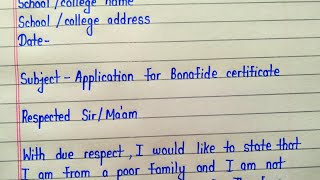 School/college name
School/college address
Date-
Subject - Application for Bonafide certificate
Respected Sir/Ma'am
With due respect, I would like to state that
I am from a poor family and I am not